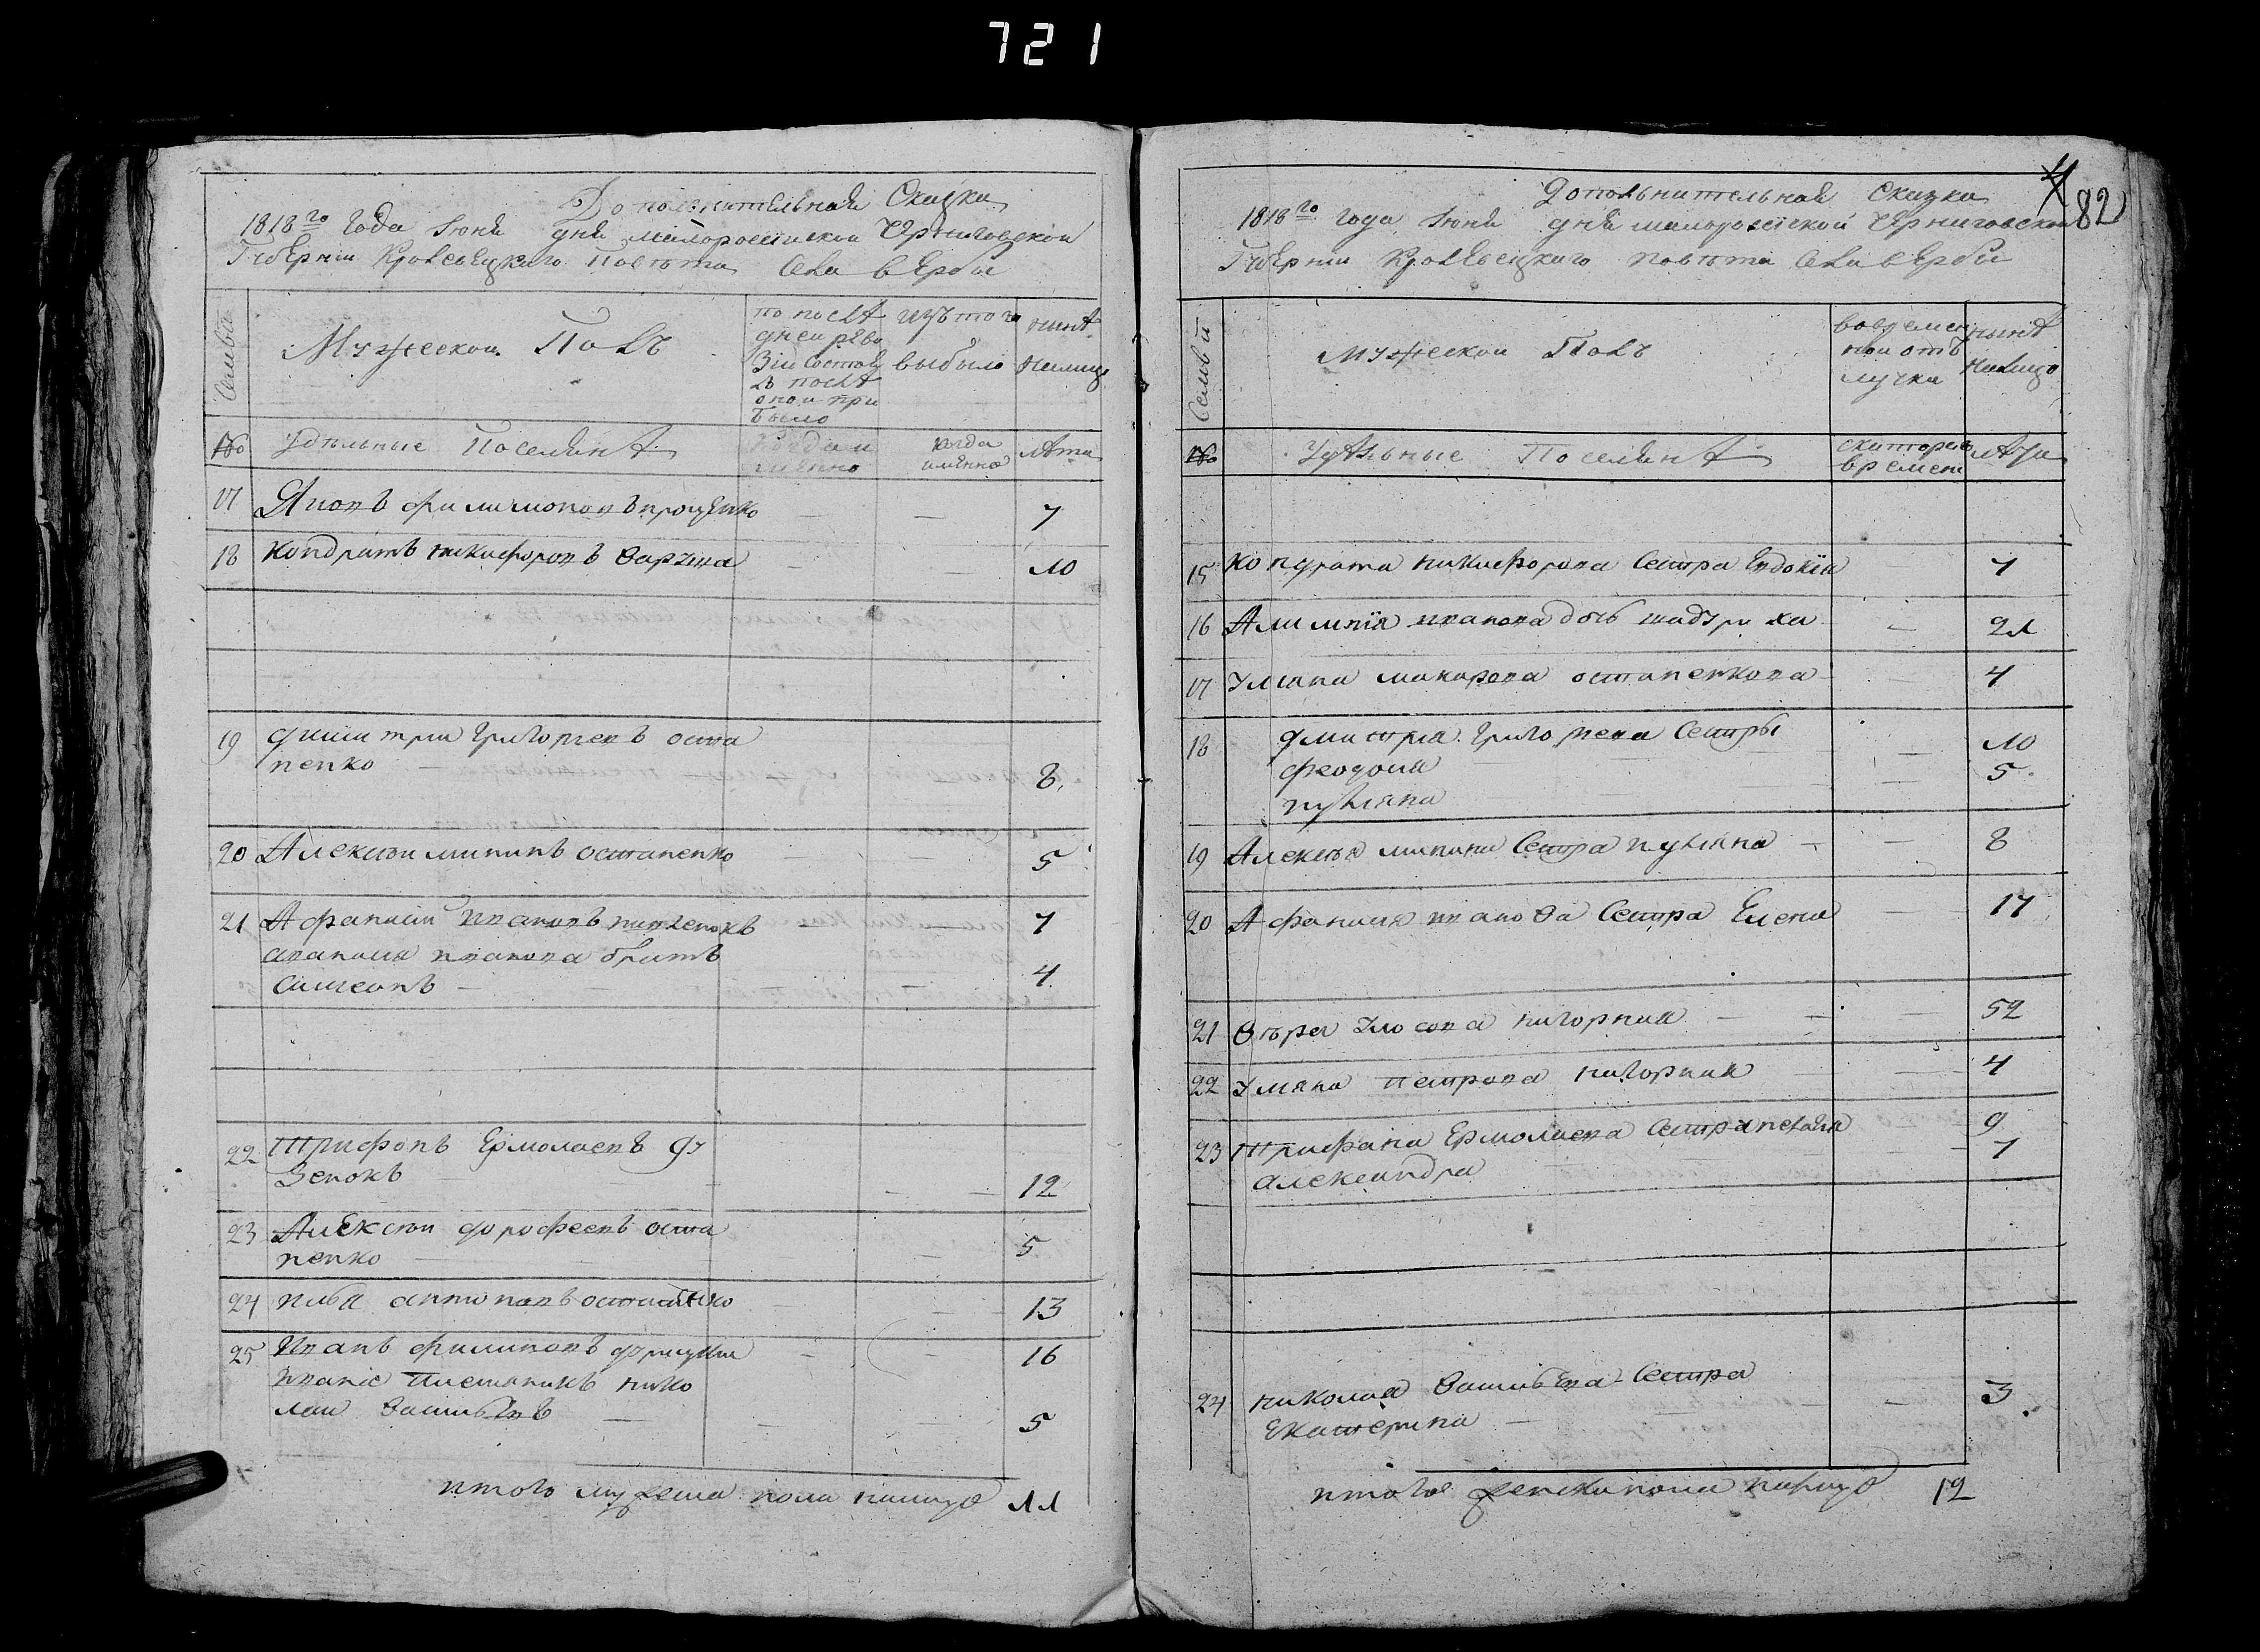 721
Дополнительная Сказка
1818го года Июня дня малороссийской Черниговской
Губернии Кролевецкого Повѣта Села вербы
Семьи
Мужеской Полъ
по послѣ
дней реви
зіи состоя
ло послѣ
оной при
было
изъ того
выбыло
нынѣ
налицо
Удѣльные Поселянѣ
когда и
именно
когда
именно
лѣта
17 Яковъ филимоновъ проценко — — 7
18 Кондратъ никифоровъ варуша — — 10
19 дмитрий григориевъ оста
пенко — 8
20 Алексѣй мининъ остапенко — 5
21 Афанасий ивановъ — 7
афанасия иванова братъ
симеонъ — — — 4
22 Трифонъ Ермолаевъ ду
зенокъ — — — 12
23 Алексѣй дорофеевъ оста
пенко — — 5
24 илья антоновъ остапенко — — 13
25 Иванъ филиповъ — — 16
племяникъ нико
лай васильевъ — — — 5
итого мужеска пола налицо 11
82
Дополнительная Сказка
1818го года Июня дня малороссійской Черниговской
Губернии Кролевецкого повѣта Села вербы
Семьи
Мужеской Полъ
во времен
ной отъ
лучки
нынѣ
налицо
Удѣльные Поселянѣ
с которого
времени
лѣта
15 Кондрата никифорова Сестра Евдокія 7
16 иванова дочь — 21
17 Уляна макарова остапенкова 4
18 дмитрия григориева Сестры — 10
феодосия — — 5
пуляна —
19 Алексѣя минина Сестра пуляна — — 8
20 Афанасия иванова Сестра Елена — 17
21 Вѣра нагорная — — — 52
22 Уляна петрова нагорная — — 4
23 Трифана Ермолаева Сестра пелагея 9
александра — — 7
24 николая васильева Сестра
Екатерина — — — 3
итого женска пола налицо 12